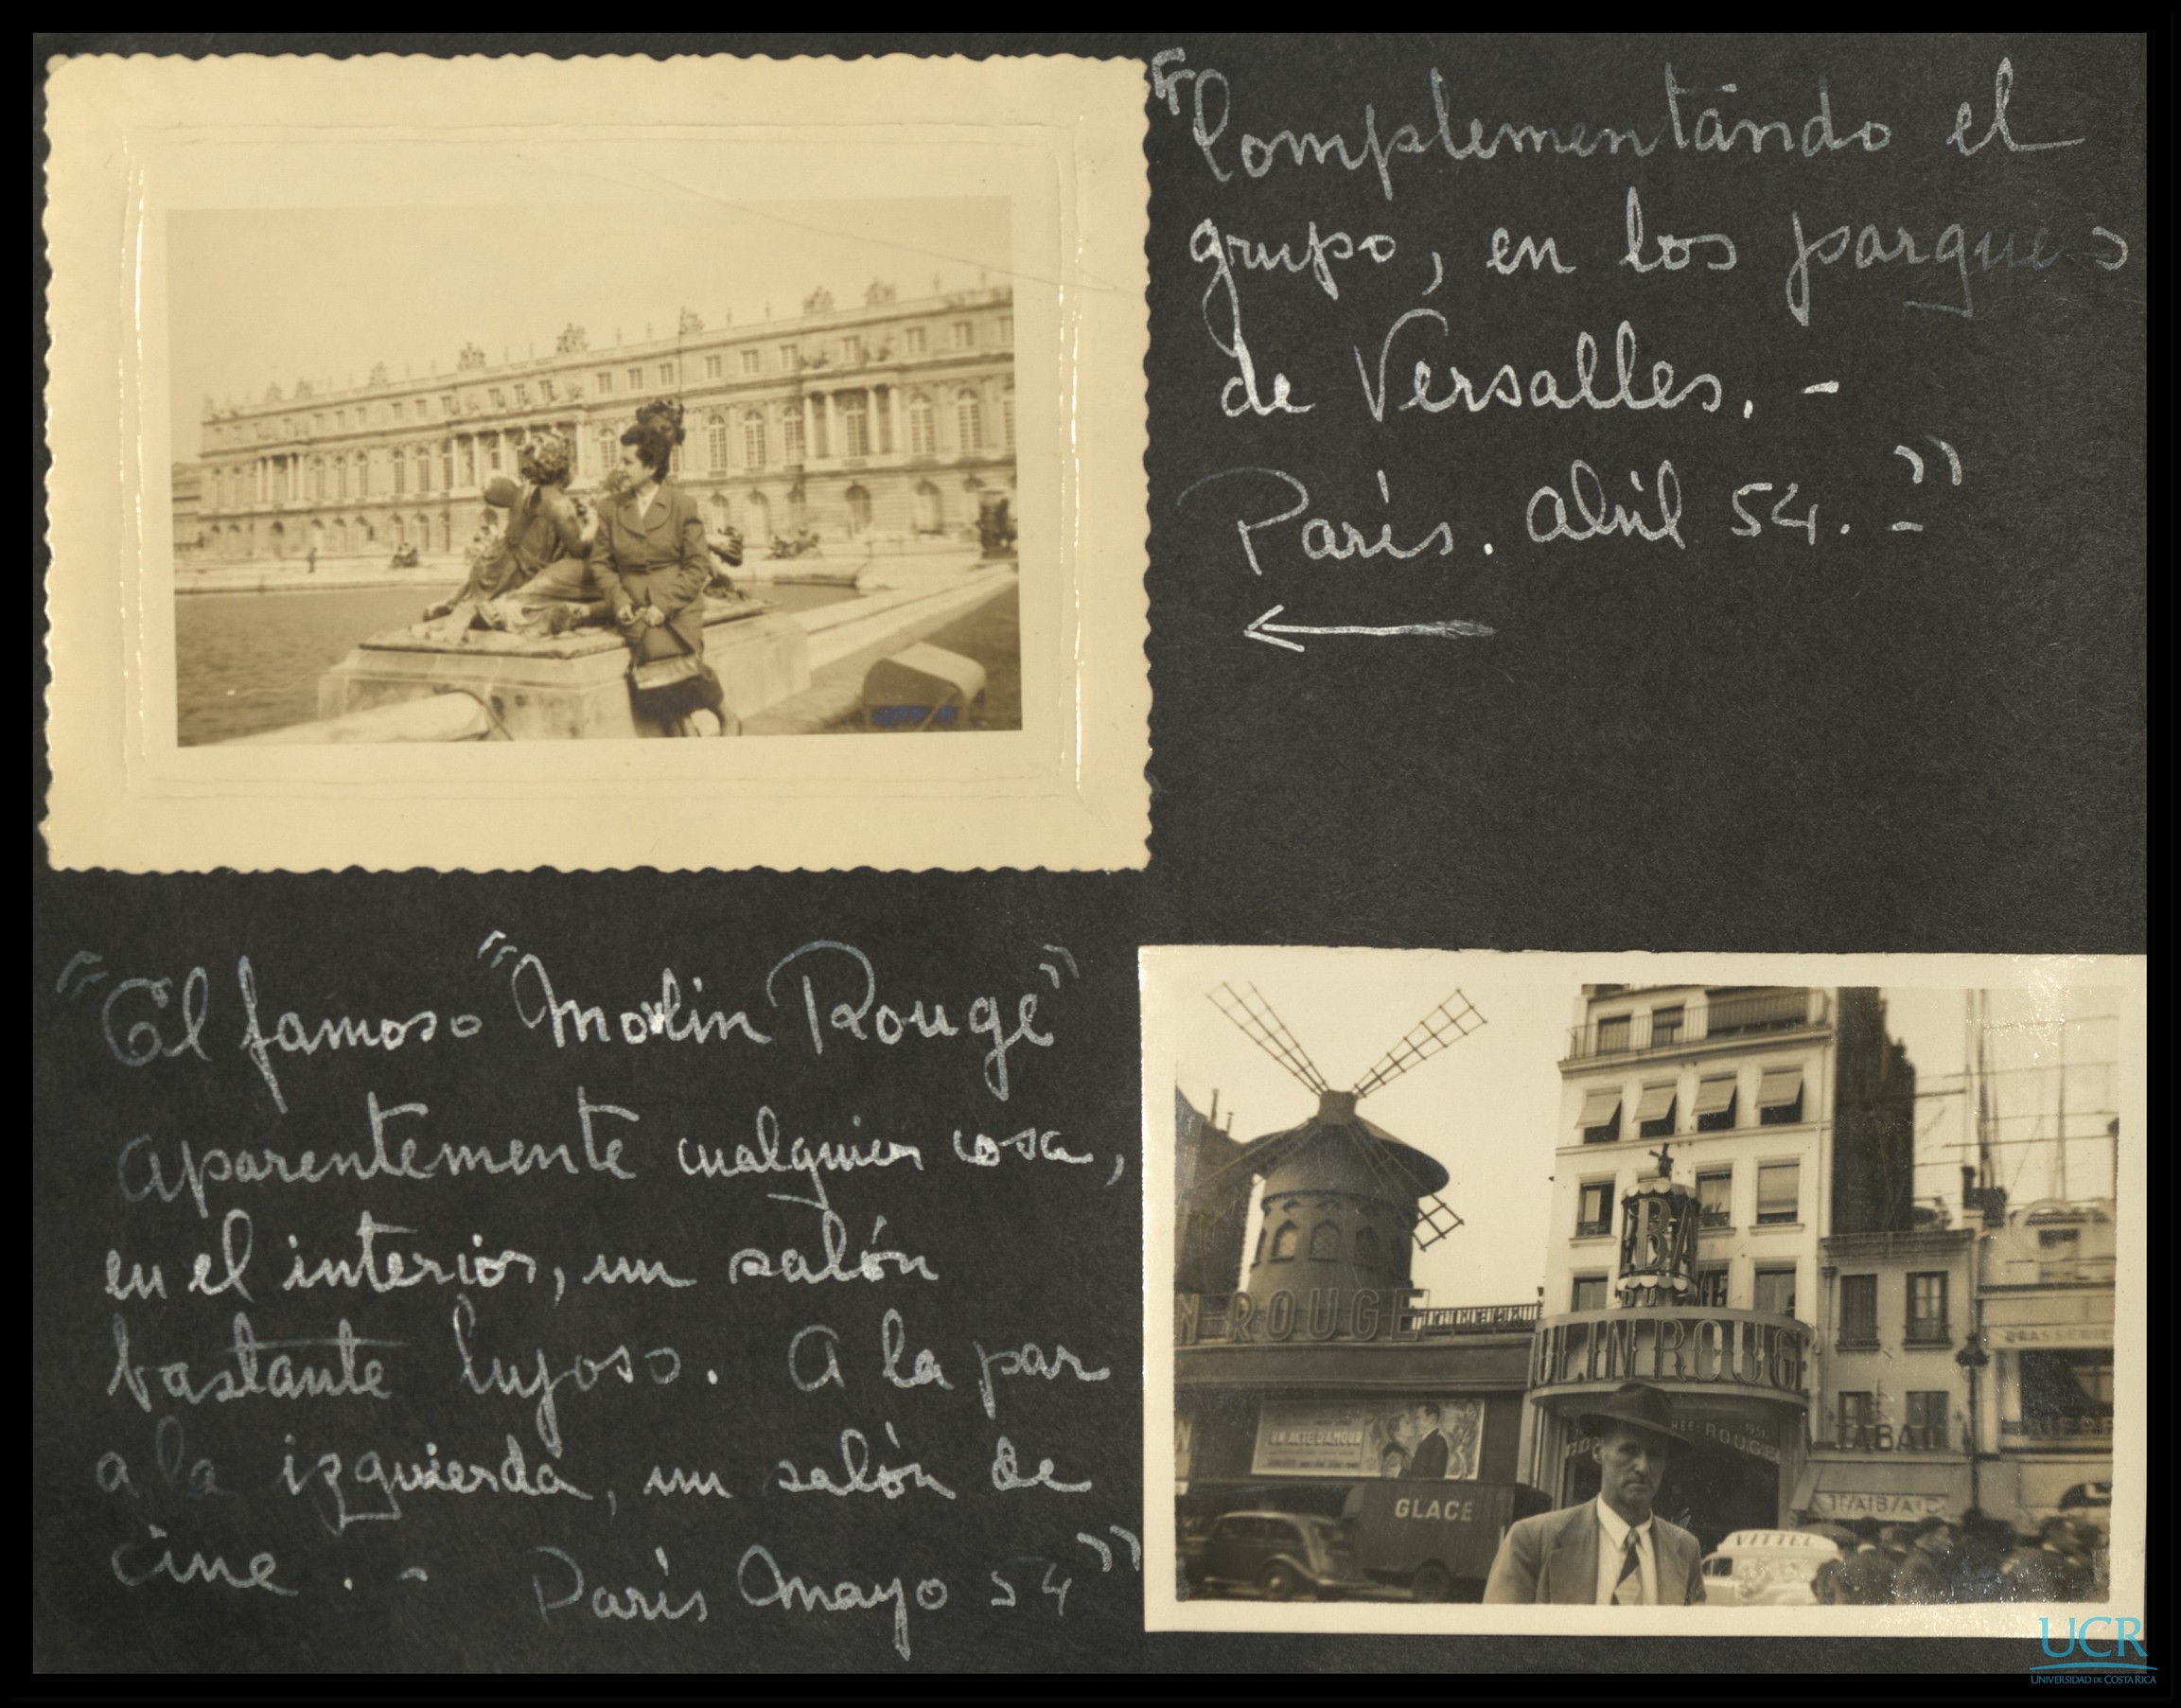 "Complementando el
grupo, en los parques
de Versalles. -
París. Abril 54. -"
"El famoso "Molin Rouge"
aparentemente cualquier cosa,
en el interior, un salón
bastante lujoso. A la par
a la izquierda, un salón de
cine. - París Mayo 54"
N ROUGE
BA
ULIN ROUGE
ROUGE
1953
UN ACTE D'AMOUR
GLACE
VITTEL
TABAC
TABAC
BRASSERIE
UCR
UNIVERSIDAD DE COSTA RICA